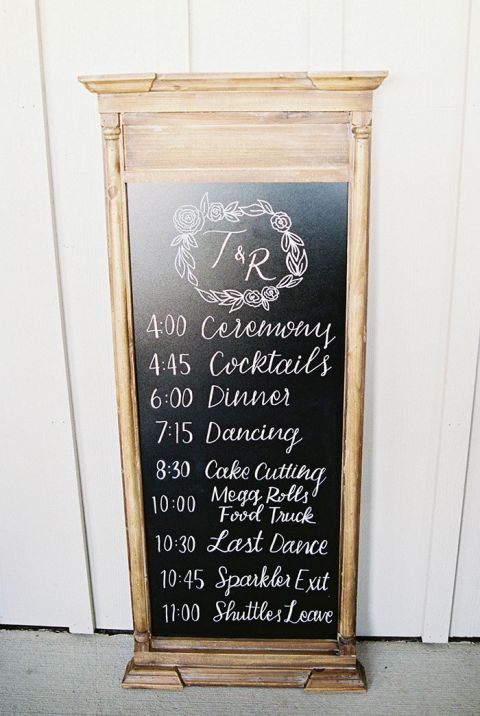 T & R
4:00 Ceremony
4:45 Cocktails
6:00 Dinner
7:15 Dancing
8:30 Cake Cutting
10:00 Megg Rolls
Food Truck
10:30 Last Dance
10:45 Sparkler Exit
11:00 Shuttles Leave